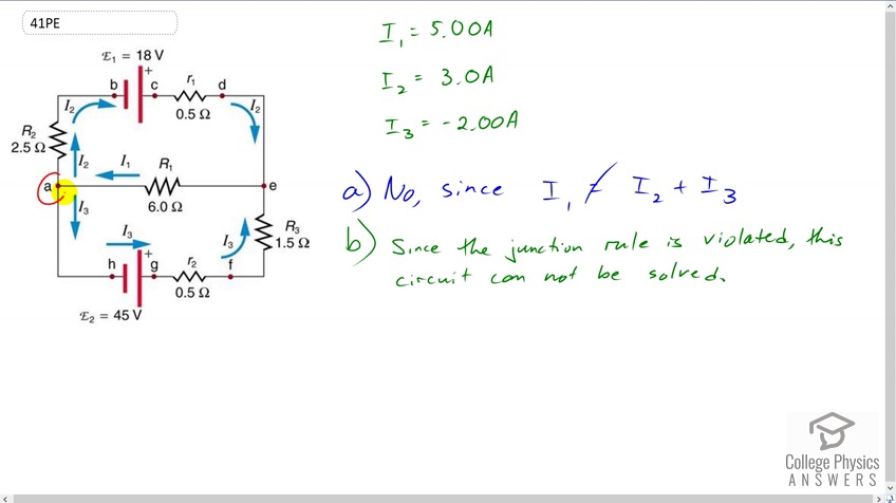 41PE
ℰ₁ = 18 V
+
b c r₁ d
I₂ I₂
0.5 Ω
R₂
2.5 Ω
I₂ I₁ R₁
a e
I₃ 6.0 Ω
I₃ I₃ R₃
1.5 Ω
+
h g r₂ f
0.5 Ω
ℰ₂ = 45 V
I₁ = 5.00A
I₂ = 3.0A
I₃ = -2.00A
a) No, since I₁ ≠ I₂ + I₃
b) Since the junction rule is violated, this
circuit can not be solved.
College Physics
ANSWERS